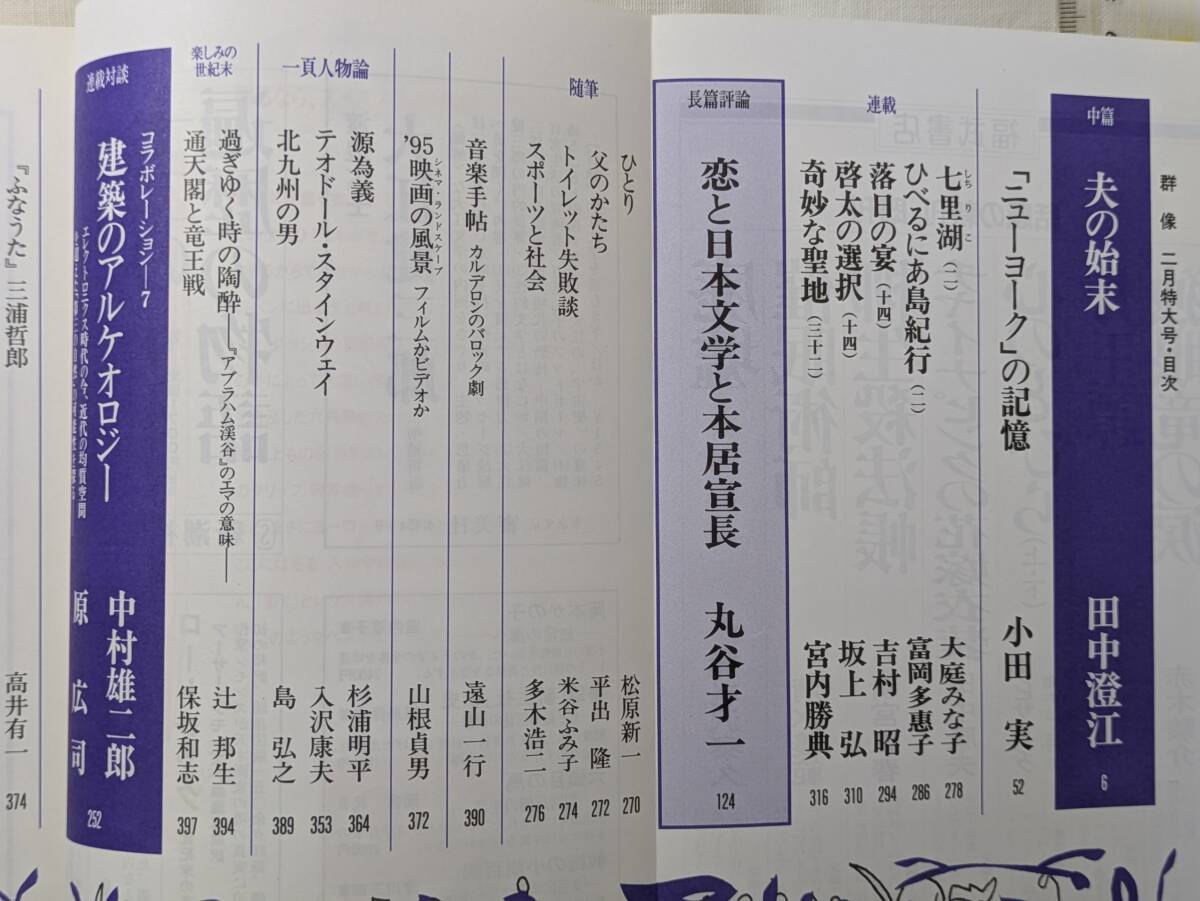 群像 二月特大号・目次
中篇
夫の始末 田中澄江 6
「ニューヨーク」の記憶 小田 実 52
連載
七里湖（一） 大庭みな子 278
しちりこ
ひべるにあ島紀行（二） 富岡多惠子 286
落日の宴（十四） 吉村 昭 294
啓太の選択（十四） 坂上 弘 310
奇妙な聖地（三十二） 宮内勝典 316
長篇評論
恋と日本文学と本居宣長 丸谷才一 124
随筆
ひとり 松原新一 270
父のかたち 平出 隆 272
トイレット失敗談 米谷ふみ子 274
スポーツと社会 多木浩二 276
音楽手帖 カルデロンのバロック劇 遠山一行 390
'95映画の風景 フィルムかビデオか 山根貞男 372
シネマ・ランドスケープ
一頁人物論
源為義 杉浦明平 364
テオドール・スタインウェイ 入沢康夫 353
北九州の男 島 弘之 389
楽しみの世紀末
過ぎゆく時の陶酔──『アブラハム渓谷』のエマの意味── 辻 邦生 394
通天閣と竜王戦 保坂和志 397
連載対談
コラボレーション──7
建築のアルケオロジー
エレクトロニクス時代の今、近代の均質空間
中村雄二郎
原 広司
252
『ふなうた』三浦哲郎 高井有一 374
福武書店